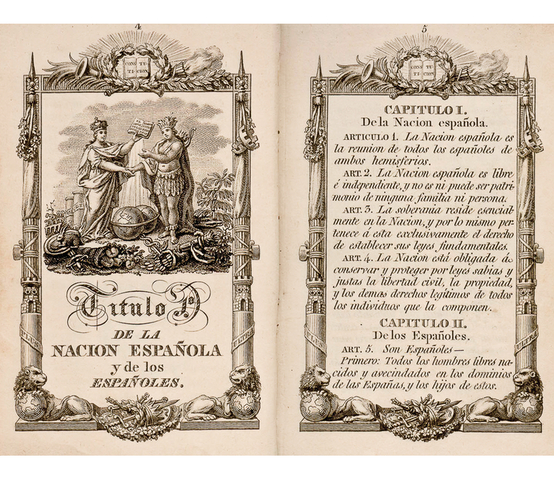 4
CONS TI
TU CION
Titulo 1º
DE LA
NACION ESPAÑOLA
y de los
ESPAÑOLES.
5
CONS TI
TU CION
CAPITULO I.
De la Nacion española.
ARTICULO 1. La Nacion española es
la reunion de todos los españoles de
ambos hemisferios.
ART. 2. La Nacion española es libre
é independiente, y no es ni puede ser patri-
monio de ninguna familia ni persona.
ART. 3. La soberania reside esencial-
mente en la Nacion, y por lo mismo per-
tenece á esta exclusivamente el derecho
de establecer sus leyes fundamentales.
ART. 4. La Nacion está obligada á
conservar y proteger por leyes sabias y
justas la libertad civil, la propiedad,
y los demas derechos legitimos de todos
los individuos que la componen.
CAPITULO II.
De los Españoles.
ART. 5. Son Españoles—
Primero: Todos los hombres libres na-
cidos y avecindados en los dominios
de las Españas, y los hijos de estos.